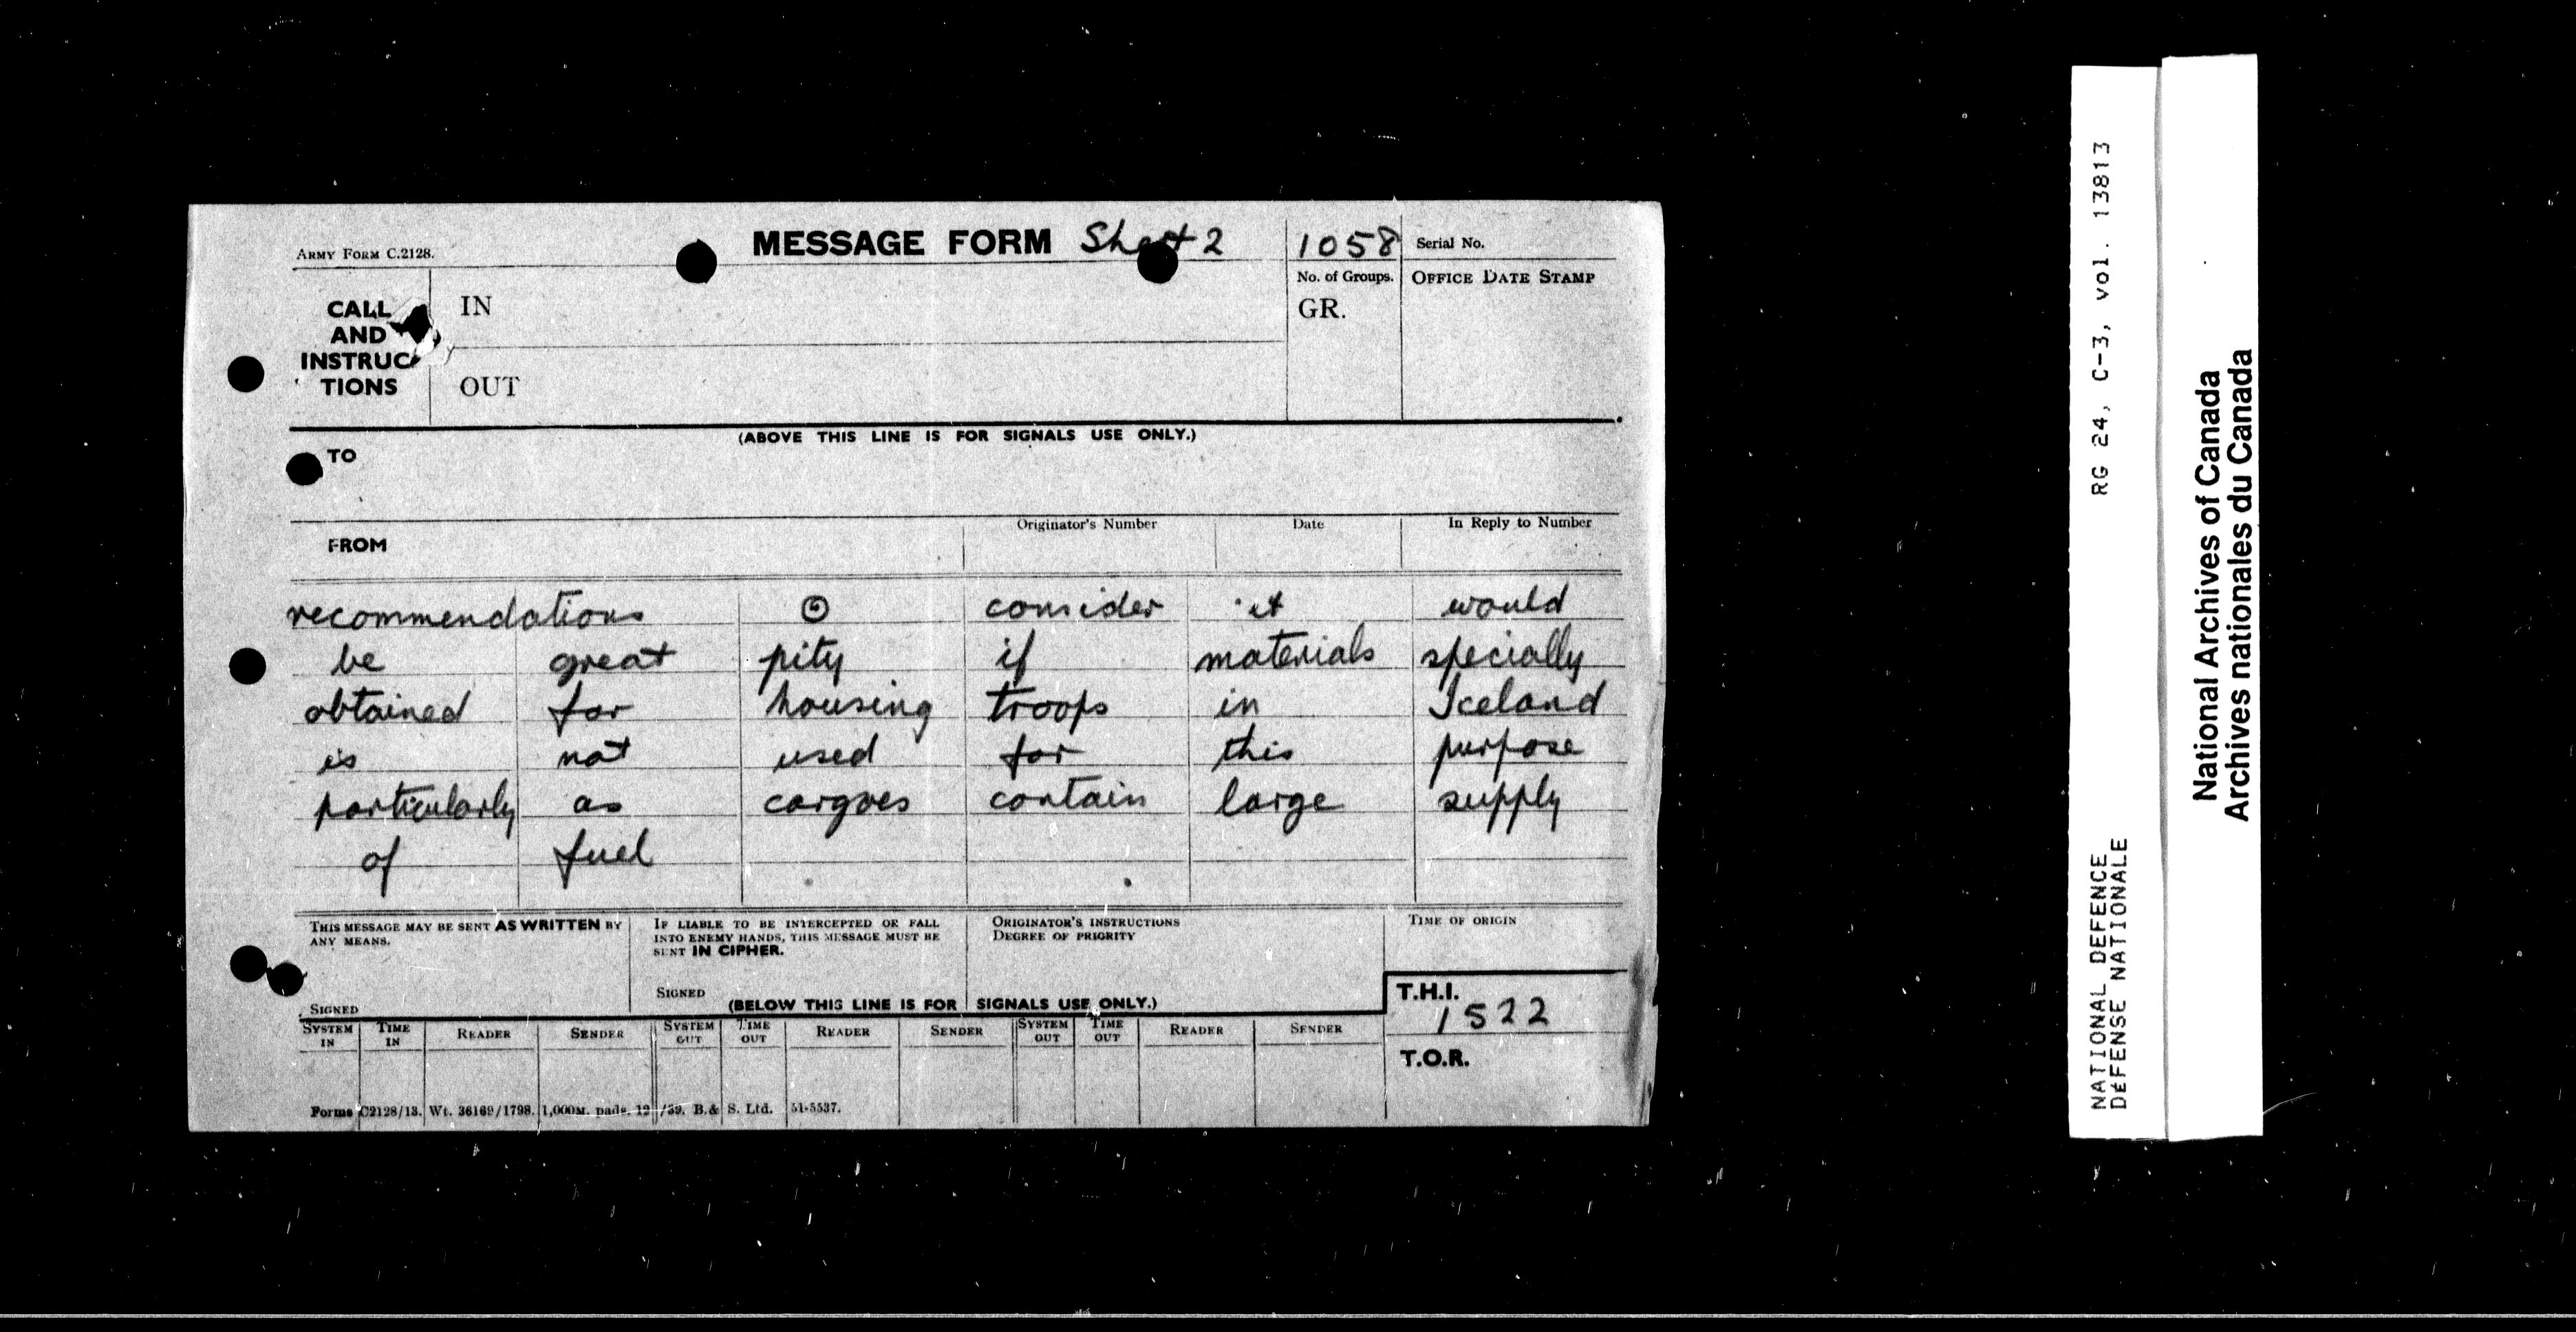 ARMY FORM C.2128.
MESSAGE FORM Sheet 2
1058 Serial No.
CALL AND INSTRUC- TIONS
IN
OUT
No. of Groups.
GR.
OFFICE DATE STAMP
(ABOVE THIS LINE IS FOR SIGNALS USE ONLY.)
TO
FROM
Originator's Number
Date
In Reply to Number
recommendations ⊙ consider it would
be great pity if materials specially
obtained for housing troops in Iceland
is not used for this purpose
particularly as cargoes contain large supply
of fuel
THIS MESSAGE MAY BE SENT AS WRITTEN BY
ANY MEANS.
SIGNED
IF LIABLE TO BE INTERCEPTED OR FALL
INTO ENEMY HANDS, THIS MESSAGE MUST BE
SENT IN CIPHER.
SIGNED
ORIGINATOR'S INSTRUCTIONS
DEGREE OF PRIORITY
TIME OF ORIGIN
(BELOW THIS LINE IS FOR SIGNALS USE ONLY.)
T.H.I.
1522
T.O.R.
SYSTEM IN TIME IN READER SENDER SYSTEM OUT TIME OUT READER SENDER SYSTEM OUT TIME OUT READER SENDER
Forms C2128/13. Wt. 36169/1798. 1,000M. pads. 12/39. B.& S. Ltd. 51-5537.
NATIONAL DEFENCE RG 24, C-3, vol. 13813
DEFENSE NATIONALE
National Archives of Canada
Archives nationales du Canada